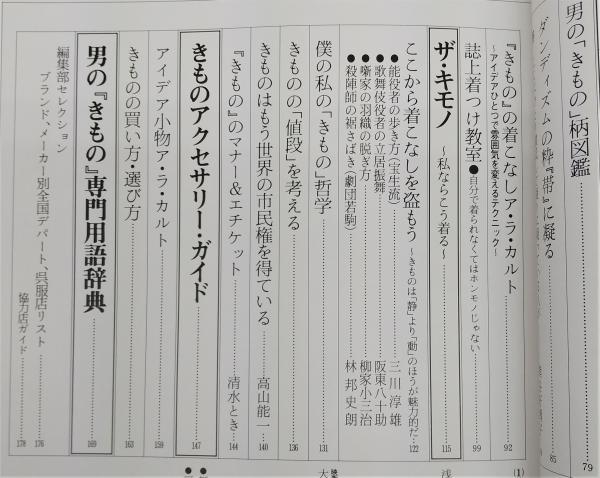 男の「きもの」柄図鑑 79
ダンディズムの粋『帯』に凝る 85
『きもの』の着こなしア・ラ・カルト 92
~アイデアひとつで雰囲気を変えるテクニック~
誌上着つけ教室●自分で着られなくてはホンモノじゃない 99
ザ・キモノ ~私ならこう着る~ 115
ここから着こなしを盗もう ~きものは「静」より「動」のほうが魅力的だ 122
●能役者の歩き方(宝生流) 三川淳雄
●歌舞伎役者の立居振舞 阪東八十助
●噺家の羽織の脱ぎ方 柳家小三治
●殺陣師の裾さばき(劇団若駒) 林邦史朗
僕の私の「きもの」哲学 131
きものの「値段」を考える 136
きものはもう世界の市民権を得ている 高山能一 140
『きもの』のマナー&エチケット 清水とき 144
きものアクセサリー・ガイド 147
アイデア小物ア・ラ・カルト 159
きものの買い方・選び方 163
男の『きもの』専門用語辞典 169
編集部セレクション
ブランド、メーカー別全国デパート、呉服店リスト 176
協力店ガイド 178
(1)
浅
大